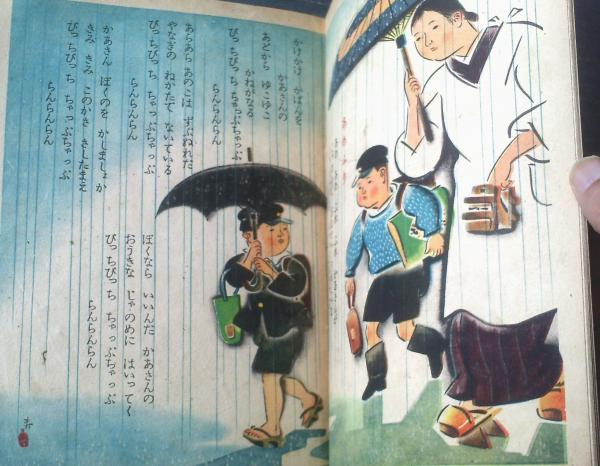 かけかけ かばんを
かあさんの
あとから ゆこゆこ
かねがなる
ぴっちぴっち ちゃっぷちゃっぷ
らんらんらん
あらあら あのこは ずぶぬれだ
やなぎの ねかたで ないている
ぴっちぴっち ちゃっぷちゃっぷ
らんらんらん
かあさん ぼくのを かしましょか
きみ きみ このかさ さしたまえ
ぴっちぴっち ちゃっぷちゃっぷ
らんらんらん
ぼくなら いいんだ かあさんの
おうきな じゃのめに はいってく
ぴっちぴっち ちゃっぷちゃっぷ
らんらんらん